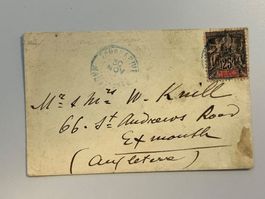 30
NOV
25
Mr & Mrs W. Knill
66. St Andrews Road
Exmouth
(Angleterre)